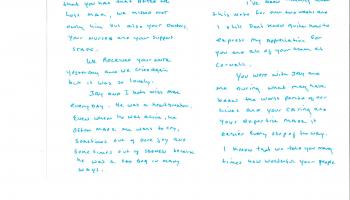 that you had that after we
lost Max, we missed not
only him but also your Doctors,
Your Nurses and your support
Staff.
We Received your card
yesterday and we cried again
but it was so lovely.
Jay and I both miss Max
Everyday. He was a heartwarmer.
Even when he was alive, he
often made me want to cry,
sometimes out of pure joy and
sometimes out of sorrow because
he was a sad dog in many
ways.
I've been
this note for
I still Don't know quite how to
express My Appreciation for
you and all of your team at
Co-wall.
You were with Jay and
me During what may have
been the worst period of our
lives and your caring and
your expertise made it
easier every step of the way.
I know that we told you many
times how wonderful your people